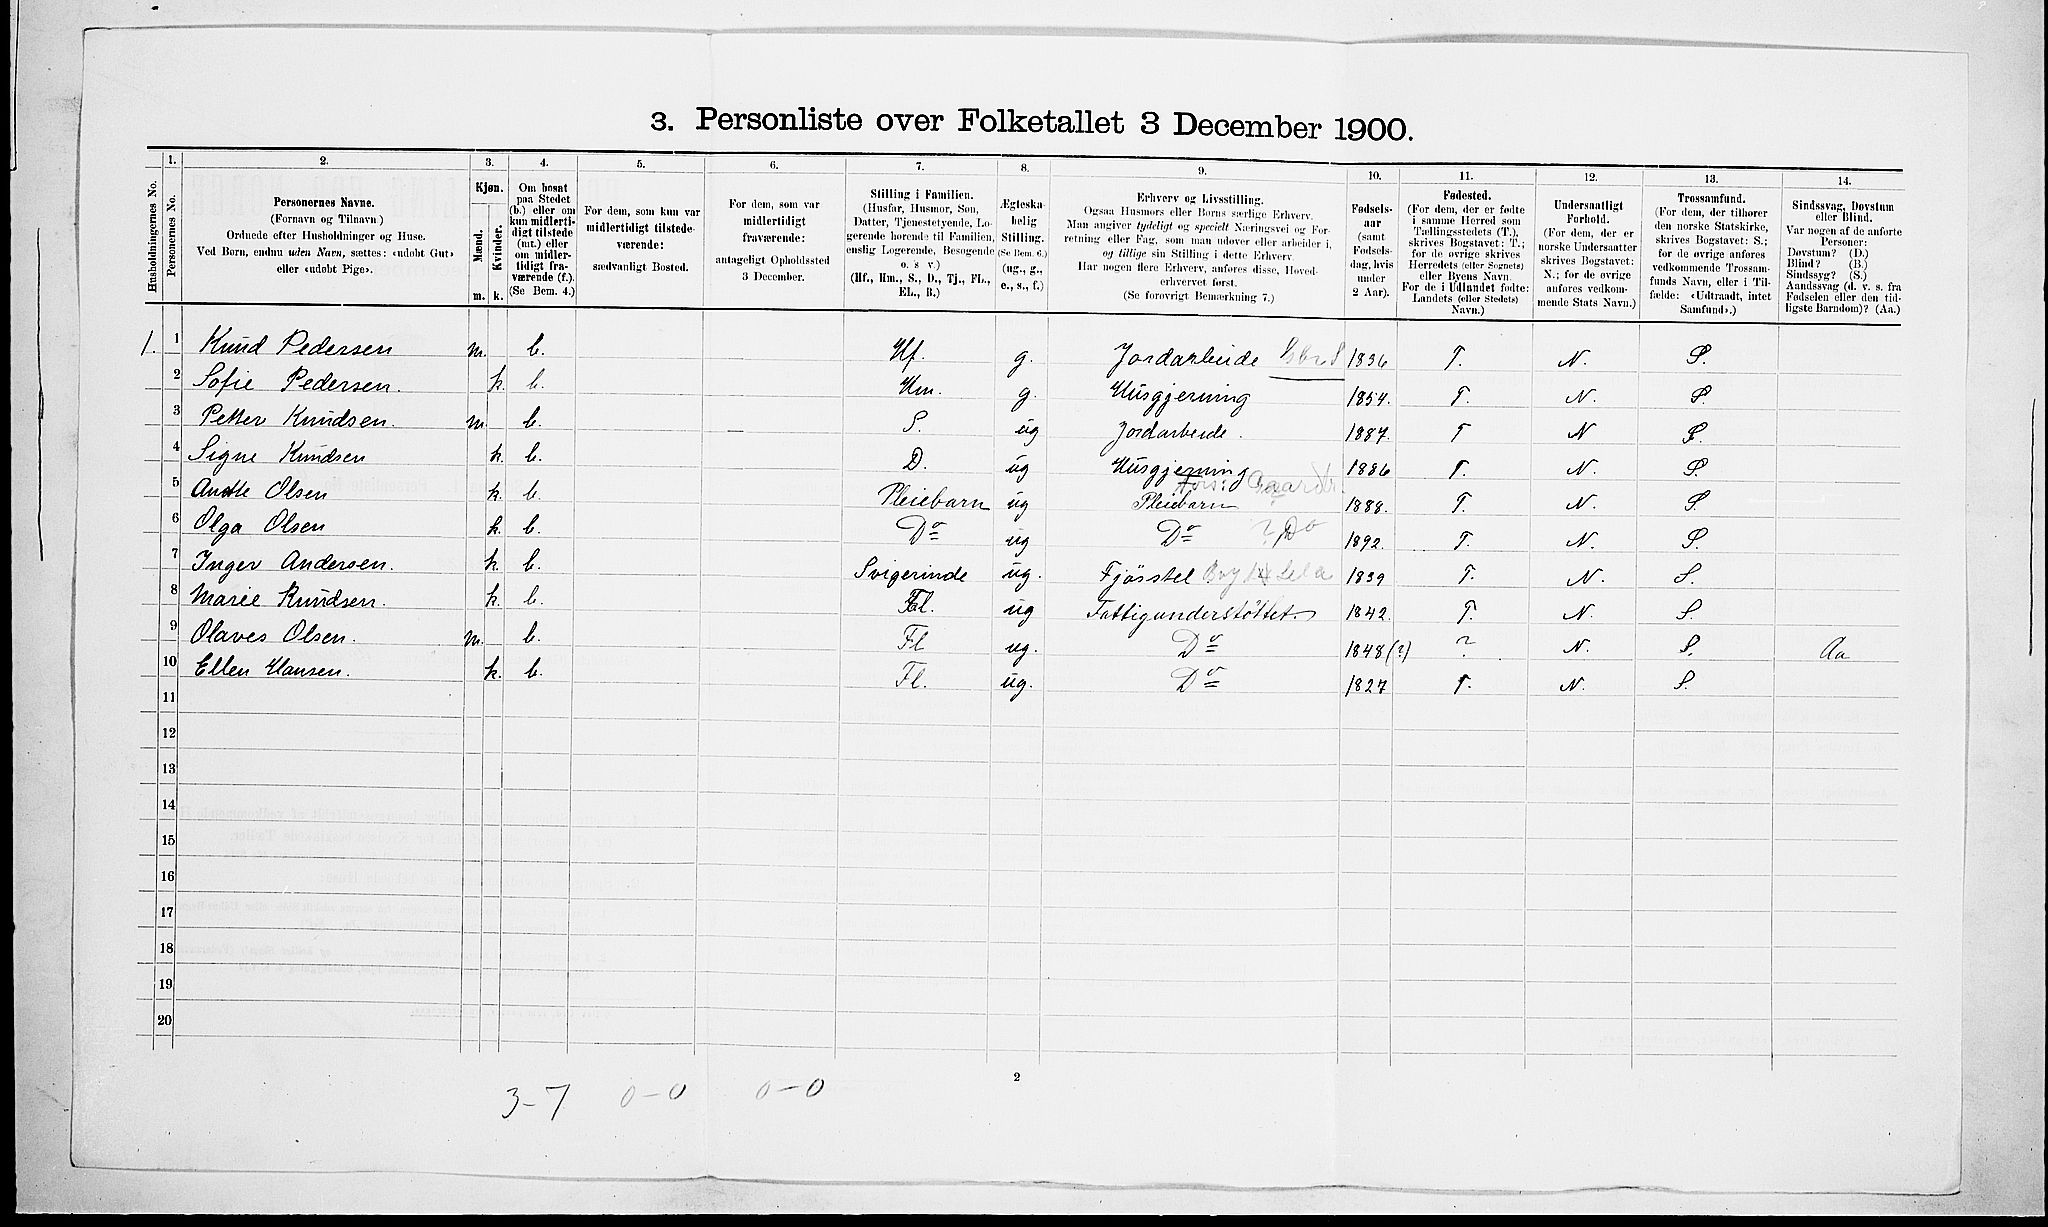 3. Personliste over Folketallet 3 December 1900.
Husholdningernes No.
1. Personernes No.
2. Personernes Navne. (Fornavn og Tilnavn.) Ordnede efter Husholdninger og Huse. Ved Børn, endnu uden Navn, sættes: «udøbt Gut» eller «udøbt Pige».
3. Kjøn. Mænd. m. Kvinder. k.
4. Om bosat paa Stedet (b.) eller om kun midlertidigt tilstede (mt.) eller om midlertidigt fraværende (f.). (Se Bem. 4.)
5. For dem, som kun var midlertidigt tilstedeværende: sædvanligt Bosted.
6. For dem, som var midlertidigt fraværende: antageligt Opholdssted 3 December.
7. Stilling i Familien. (Husfar, Husmor, Søn, Datter, Tjenestetyende, Logerende hørende til Familien, enslig Logerende, Besøgende o. s. v.) (Hf., Hm., S., D., Tj., FL., EL., B.)
8. Ægteskabelig Stilling. (Se Bem. 6.) (ug., g., e., s., f.)
9. Erhverv og Livsstilling. Ogsaa Husmors eller Børns særlige Erhverv. Man angiver tydeligt og specielt Næringsvei og Forretning eller Fag, som man udøver eller arbeider i, og tillige sin Stilling i dette Erhverv. Har nogen flere Erhverv, anføres disse, Hovederhvervet først. (Se forøvrigt Bemærkning 7.)
10. Fødselsaar (samt Fødselsdag, hvis under 2 Aar).
11. Fødested. (For dem, der er fødte i samme Herred som Tællingsstedets (T.), skrives Bogstavet: T.; for de øvrige skrives Herredets (eller Sognets) eller Byens Navn. For de i Udlandet fødte: Landets (eller Stedets) Navn.)
12. Undersaatligt Forhold. (For dem, der er norske Undersaatter skrives Bogstavet: N.; for de øvrige anføres vedkommende Stats Navn.)
13. Trossamfund. (For dem, der tilhører den norske Statskirke, skrives Bogstavet: S.; for de øvrige anføres vedkommende Trossamfunds Navn, eller i Tilfælde: «Udtraadt, intet Samfund».)
14. Sindssvag, Døvstum eller Blind. Var nogen af de anførte Personer: Døvstum? (D.) Blind? (B.) Sindssyg? (S.) Aandssvag (d. v. s. fra Fødselen eller den tidligste Barndom)? (Aa.)
1. 1 Knud Pedersen m. b. Hf. g. Jordarbeide 1836 T. N. S.
2 Sofie Pedersen. k. b. Hm. g. Husgjerning 1854. T. N. S.
3 Petter Knudsen. m. b. S. ug Jordarbeide. 1887. T N S.
4 Signe Knudsen k. b. D. ug Husgjerning 1886 T. N. S.
5 Olsen k. b. Pleiebarn ug Pleiebarn Gaardbr. 1888. T. N. S.
6 Olga Olsen k. b. Do ug Do ? Do 1892. T. N. S.
7 Inger Andersen. k. b. Svigerinde ug. Fjøsstel 1839 T. N. S.
8 Marie Knudsen. k. b. Fl. ug Fattigunderstøttet. 1842. T. N. S
9 Olaves Olsen. m. b. Fl ug. Do 1848(?) ? N. S. Aa
10 Ellen Hansen. k. b. Fl. ug. Do 1827 T. N. S.
11
12
13
14
15
16
17
18
19
20
2
3-7 0-0 0-0